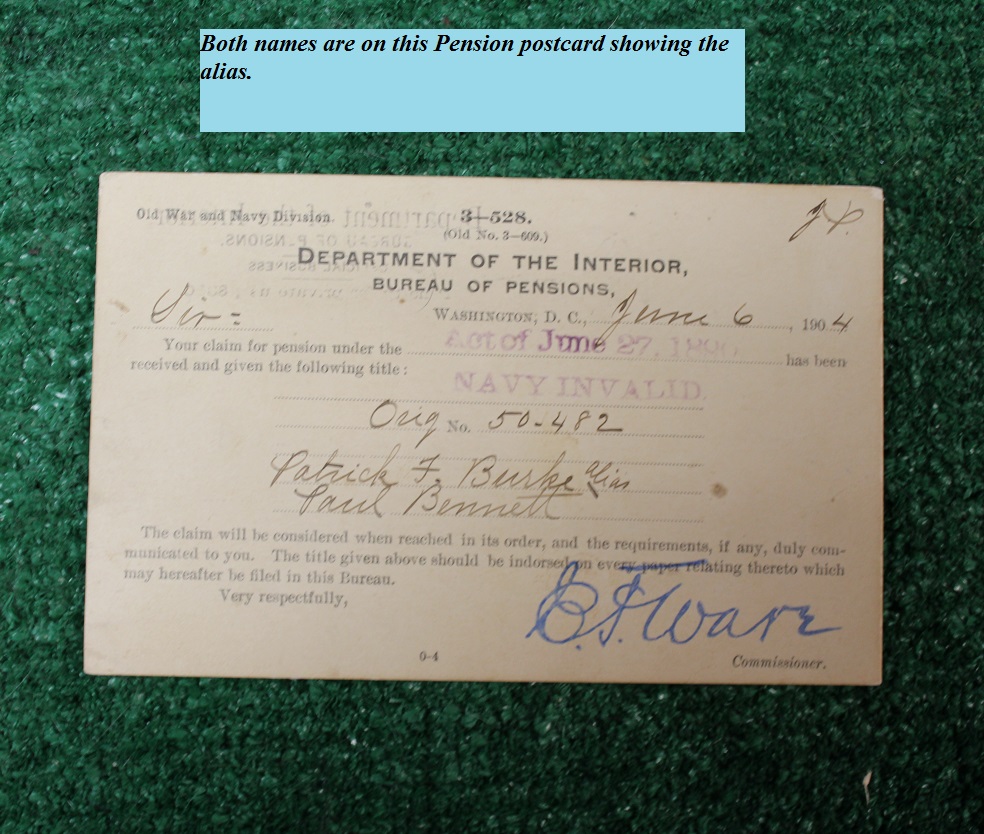 Both names are on this Pension postcard showing the
alias.
Old War and Navy Division.
3—528.
(Old No. 3—609.)
DEPARTMENT OF THE INTERIOR,
BUREAU OF PENSIONS,
WASHINGTON, D. C., June 6, 1904
Sir =
Your claim for pension under the Act of June 27, 1890 has been
received and given the following title:
NAVY INVALID.
Orig No. 50-482
Patrick F. Burke alias
Paul Bennett
The claim will be considered when reached in its order, and the requirements, if any, duly com-
municated to you. The title given above should be indorsed on every paper relating thereto which
may hereafter be filed in this Bureau.
Very respectfully,
E. F. Ware
0-4
Commissioner.